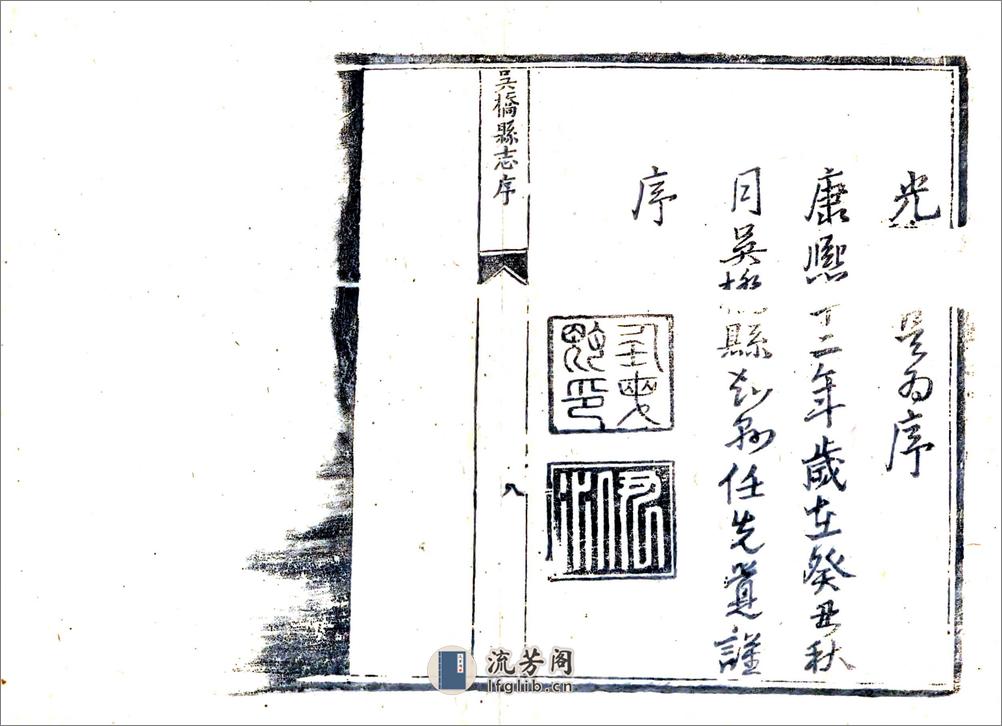 光
是為序
康熙十二年歲在癸丑秋
月吳橋縣知縣任先覺謹
序
吳橋縣志序
八
流芳阁
lfglib.cn